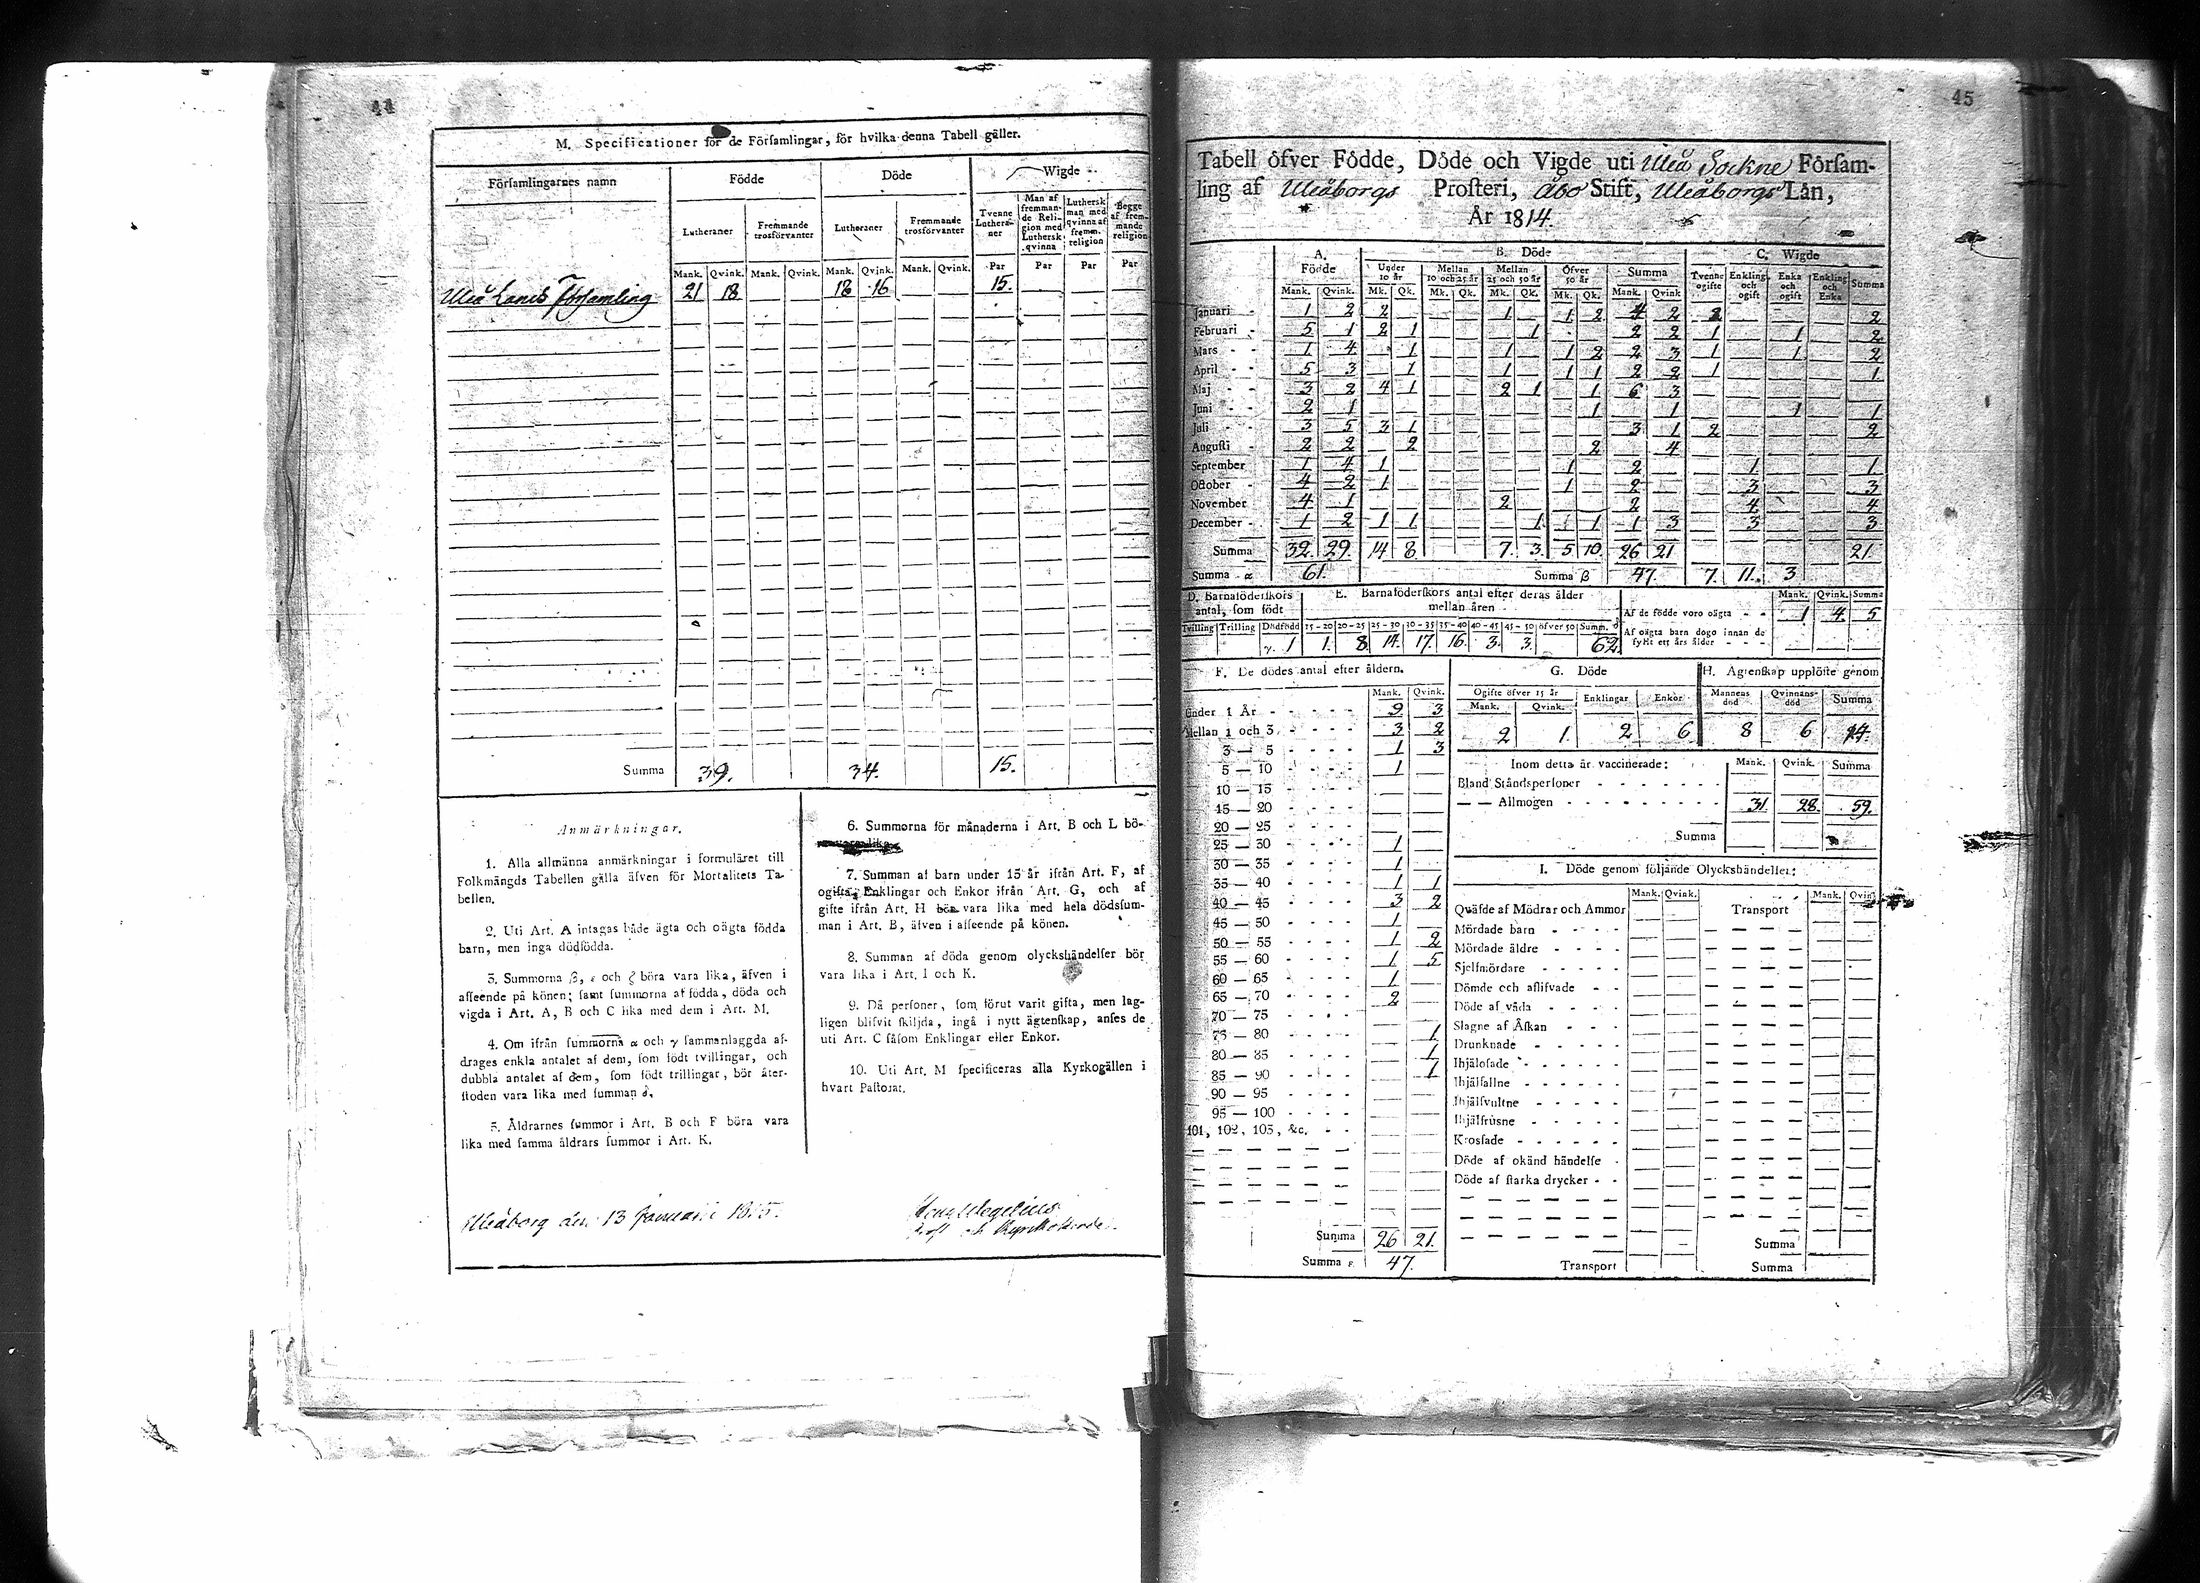 44
M. Specificationer för de Församlingar, för hvilka denna Tabell gäller.
Församlingarnes namn
Födde
Döde
Wigde
Lutheraner
Fremmande trosförvanter
Lutheraner
Fremmande trosförvanter
Tvenne Lutheraner
Man af fremmande Religion med Luthersk qvinna
Luthersk man med qvinna af fremm. religion
Begge af fremmande religion
Mank. Qvink. Mank. Qvink. Mank. Qvink. Mank. Qvink. Par Par Par Par
Uleå Lands Församling 21 18 18 16 15.
Summa 39. 34. 15.
Anmärkningar.
1. Alla allmänna anmärkningar i formuläret till
Folkmängds Tabellen gälla äfven för Mortalitets Ta-
bellen.
2. Uti Art. A intagas både ägta och oägta födda
barn, men inga dödfödda.
3. Summorna β, ε och ζ böra vara lika, äfven i
afseende på könen; samt summorna af födda, döda och
vigda i Art. A, B och C lika med dem i Art. M.
4. Om ifrån summorna α och γ sammanlaggda af-
drages enkla antalet af dem, som födt tvillingar, och
dubbla antalet af dem, som födt trillingar, bör åter-
stoden vara lika med summan δ.
5. Åldrarnes summor i Art. B och F böra vara
lika med samma åldrars summor i Art. K.
6. Summorna för månaderna i Art. B och L bö-
7. Summan af barn under 15 år ifrån Art. F, af
ogifta, Enklingar och Enkor ifrån Art. G, och af
gifte ifrån Art. H bör vara lika med hela dödssum-
man i Art. B, äfven i afseende på könen.
8. Summan af döda genom olyckshändelser bör
vara lika i Art. I och K.
9. Då personer, som förut varit gifta, men lag-
ligen blifvit skiljda, ingå i nytt ägtenskap, anses de
uti Art. C såsom Enklingar eller Enkor.
10. Uti Art. M specificeras alla Kyrkogällen i
hvart Pastorat.
Uleåborg den 13 Januarii 1815.
45
Tabell öfver Födde, Döde och Vigde uti Uleå Sockne Församling af Uleåborgs Prosteri, Åbo Stift, Uleåborgs Län,
År 1814.
A. Födde
B. Döde
C. Wigde
Under 10 år
Mellan 10 och 25 år
Mellan 25 och 50 år
Öfver 50 år
Summa
Tvenne ogifte
Enkling och ogift
Enka och ogift
Enkling och Enka
Summa
Mank. Qvink. Mk. Qk. Mk. Qk. Mk. Qk. Mk. Qk. Mank. Qvink
Januari 1 2 2 1 1 2 4 2 2 2
Februari 5 1 2 1 1 2 2 1 1 2
Mars 1 4 1 1 1 2 2 3 1 1 2
April 5 3 1 1 1 1 2 2 1 1
Maj 3 2 4 1 2 1 1 6 3
Juni 2 1 1 1 1 1
Juli 3 5 3 1 3 1 2 2
Augusti 2 2 2 2 4
September 1 4 1 1 2 1 1
October 4 2 1 1 2 3 3
November 4 1 2 2 4 4
December 1 2 1 1 1 1 1 3 3 3
Summa 32. 29. 14 8. 7. 3. 5 10. 26 21 21.
Summa α 61. Summa β 47. 7. 11. 3
D. Barnaföderskors antal, som födt
E. Barnaföderskors antal efter deras ålder mellan åren
Tvilling Trilling Dödfödd 15-20 20-25 25-30 30-35 35-40 40-45 45-50 öfver 50 Summ. δ
γ. 1 1. 8. 14. 17. 16. 3. 3. 62.
Mank. Qvink. Summa
Af de födde voro oägta 1 4. 5
Af oägta barn dogo innan de
fyllt ett års ålder
F. De dödes antal efter åldern.
Mank. Qvink.
Under 1 År 9 3
Mellan 1 och 3 3 2
3 — 5 1 3
5 — 10 1
10 — 15
15 — 20
20 — 25
25 — 30 1
30 — 35 1
35 — 40 1 1
40 — 45 3 2
45 — 50 1
50 — 55 1 2
55 — 60 1 5
60 — 65 1
65 — 70 2
70 — 75
75 — 80 1
80 — 85 1
85 — 90 1
90 — 95
95 — 100
101, 102, 103, &c.
Summa 26 21.
Summa ε 47.
G. Döde
Ogifte öfver 15 år
Enklingar
Enkor
Mank. Qvink.
2 1. 2 6
H. Ägtenskap upplöste genom
Mannens död
Qvinnans död
Summa
8 6 14.
Inom detta år vaccinerade: Mank. Qvink. Summa
Bland Ståndspersoner
— — Allmogen 31. 28. 59.
Summa
I. Döde genom följande Olyckshändelser:
Mank. Qvink. Mank. Qvin
Qväfde af Mödrar och Ammor Transport
Mördade barn
Mördade äldre
Sjelfmördare
Dömde och aflifvade
Döde af våda
Slagne af Åskan
Drunknade
Ihjälosade
Ihjälfallne
Ihjälsvultne
Ihjälfrusne
Krossade
Döde af okänd händelse
Döde af starka drycker
Summa
Transport Summa